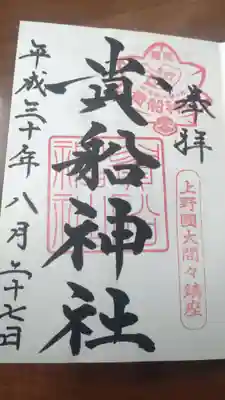 奉拝
上野國大間々鎮座
貴船神社
平成三十年八月二十七日